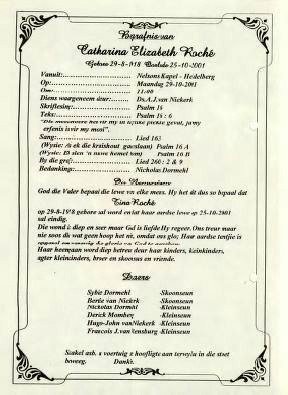 Begrafnis van
Catharina Elizabeth Roché
Gebore 29-8-1918 Oorlede 25-10-2001
Vanuit:............ Nelsons Kapel - Heidelberg
Op:............ Maandag 29-10-2001
Om:............ 11:00
Diens waargeneem deur:........ Ds.A.J.van Niekerk
Skriflesing:............ Psalm 16
Teks:............ Psalm 16 : 6
"Die meetsnoere het vir my in lieflike plekke geval, ja my
erfenis is vir my mooi".
Sang:............ Lied 163
(Wysie: As ek die kruishout gaeslaan) Psalm 16 A
(Wysie: Ek sien 'n nuwe hemel kom) Psalm 16 B
By die graf:............ Lied 266 : 2 & 9
Bedankings:............ Nicholas Dormehl
In Memoriam
God die Vader bepaal die lewe van elke mens. Hy het dit dus so bepaal dat
Tina Roché
op 29-8-1918 gebore sal word en dat haar aardse lewe op 25-10-2001
sal eindig.
Die wond is diep en seer maar God is liefde Hy regeer. Ons treur maar
nie soos die wat geen hoop het nie, omdat ons glo; Haar aardse tentjie is
Haar heengaan word diep betreur deur haar kinders, kleinkinders,
agter kleinkinders, broer en skoonsus en vriende.
Draers
Sybie Dormehl -Skoonseun
Bertie van Niekerk -Skoonseun
Nicholas Dormehl -Kleinseun
Derick Momberg -Kleinseun
Hugo-John vanNiekerk -Kleinseun
Francois J.van Rensburg -Kleinseun
Skakel asb. u voertuig se hoofligte aan terwyl u in die stoet
beweeg. Dankie.